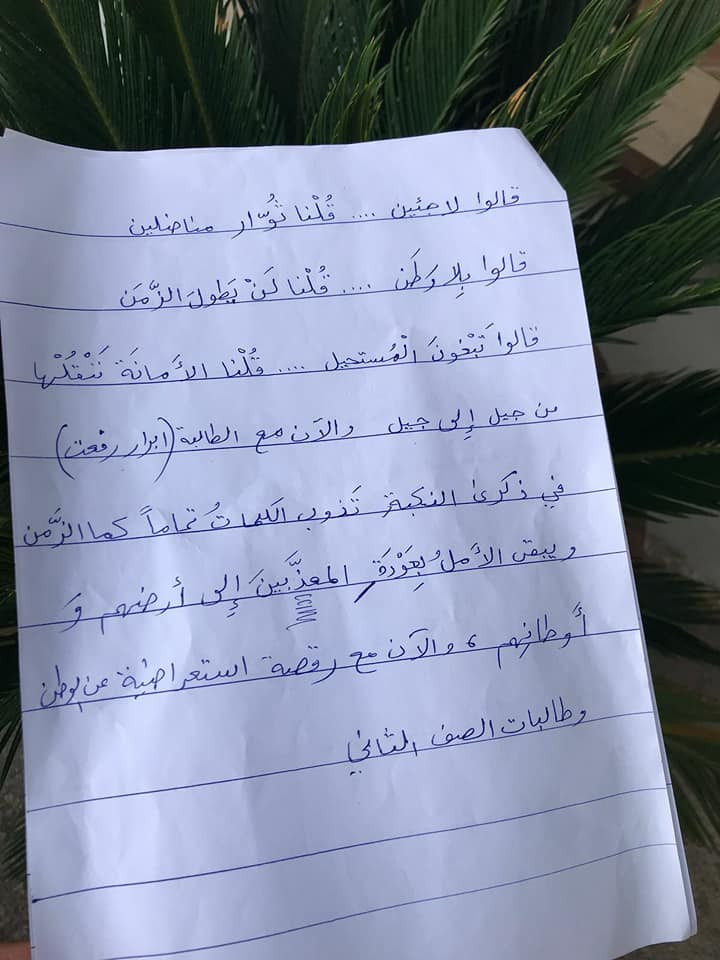 قالوا لاجئين .... قُلْنا ثُوّار مناضلين
قالوا بِلا وَطَن .... قُلْنا لَنْ يَطولَ الزَّمَن
قالوا تَبْغونَ الْمُستحيل .... قُلْنا الأمانَة نَنْقُلْها
من جيل إلى جيل والآن مع الطالبة (ابرار رفعت)
في ذكرى النكبة تَذوب الكلماتُ تماماً كما الزَّمن
ويبقى الأملُ بِعَوْدَةِ المعذَّبينَ إلى أرضهم وَ
أوطانهم ، والآن مع رقصة استعراضية عن الوطن
وطالبات الصف الثاني